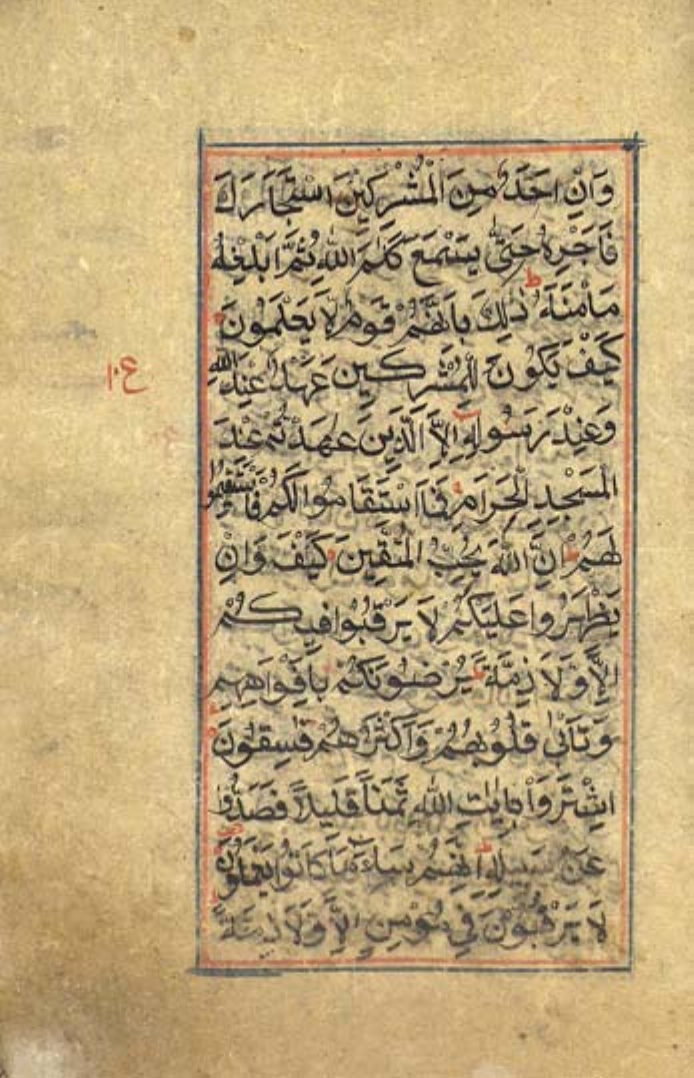 وَاِنْ اَحَدٌ مِنَ الْمُشْرِكِيْنَ اسْتَجَارَكَ
فَاَجِرْهُ حَتّٰى يَسْمَعَ كَلٰمَ اللّٰهِ ثُمَّ اَبْلِغْهُ
مَاْمَنَهٗ ط ذٰلِكَ بِاَنَّهُمْ قَوْمٌ لَا يَعْلَمُوْنَ
كَيْفَ يَكُوْنُ لِلْمُشْرِكِيْنَ عَهْدٌ عِنْدَ اللّٰهِ
ع ١٠
وَعِنْدَ رَسُوْلِهٖ اِلَّا الَّذِيْنَ عٰهَدْتُمْ عِنْدَ
الْمَسْجِدِ الْحَرَامِ فَمَا اسْتَقَامُوْا لَكُمْ فَاسْتَقِيْمُوْا
لَهُمْ اِنَّ اللّٰهَ يُحِبُّ الْمُتَّقِيْنَ كَيْفَ وَاِنْ
يَظْهَرُوْا عَلَيْكُمْ لَا يَرْقُبُوْا فِيْكُمْ
اِلًّا وَّلَا ذِمَّةً يُرْضُوْنَكُمْ بِاَفْوَاهِهِمْ
وَتَاْبٰى قُلُوْبُهُمْ وَاَكْثَرُهُمْ فٰسِقُوْنَ
اِشْتَرَوْا بِاٰيٰتِ اللّٰهِ ثَمَنًا قَلِيْلًا فَصَدُّوْا
عَنْ سَبِيْلِهٖ اِنَّهُمْ سَاءَ مَا كَانُوْا يَعْمَلُوْنَ
لَا يَرْقُبُوْنَ فِيْ مُؤْمِنٍ اِلًّا وَّلَا ذِمَّةً